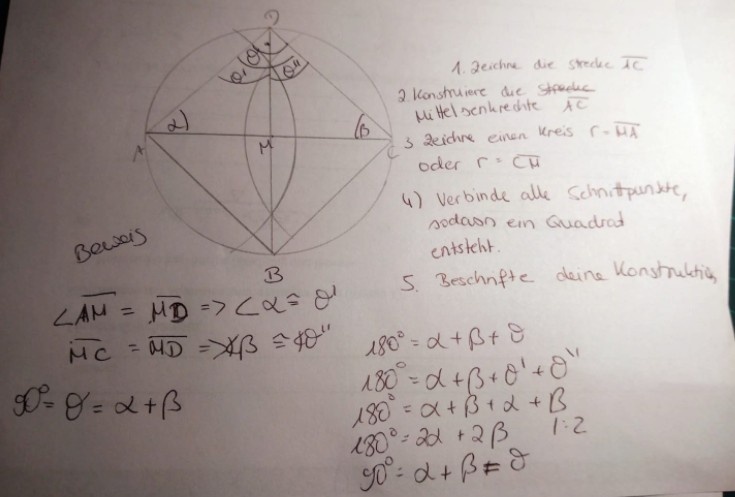 D
θ
θ' θ''
α β
A M C
B
1. Zeichne die strecke AC
2. Konstruiere die Strecke
Mittelsenkrechte AC
3 Zeichne einen Kreis r = MA
oder r = CM
4) Verbinde alle Schnittpunkte,
sodass ein Quadrat
entsteht.
5. Beschrifte deine Konstruktion
Beweis
∠AM = MD => ∠α ≅ θ'
MC = MD => ∢β ≅ ∢θ''
90° = θ = α + β
180° = α + β + θ
180° = α + β + θ' + θ''
180° = α + β + α + β
180° = 2α + 2β 1:2
90° = α + β = θ